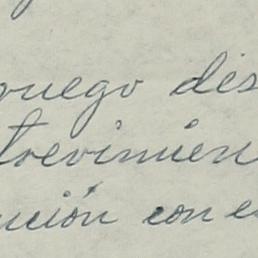 ruego dis
trevimien
ución con e